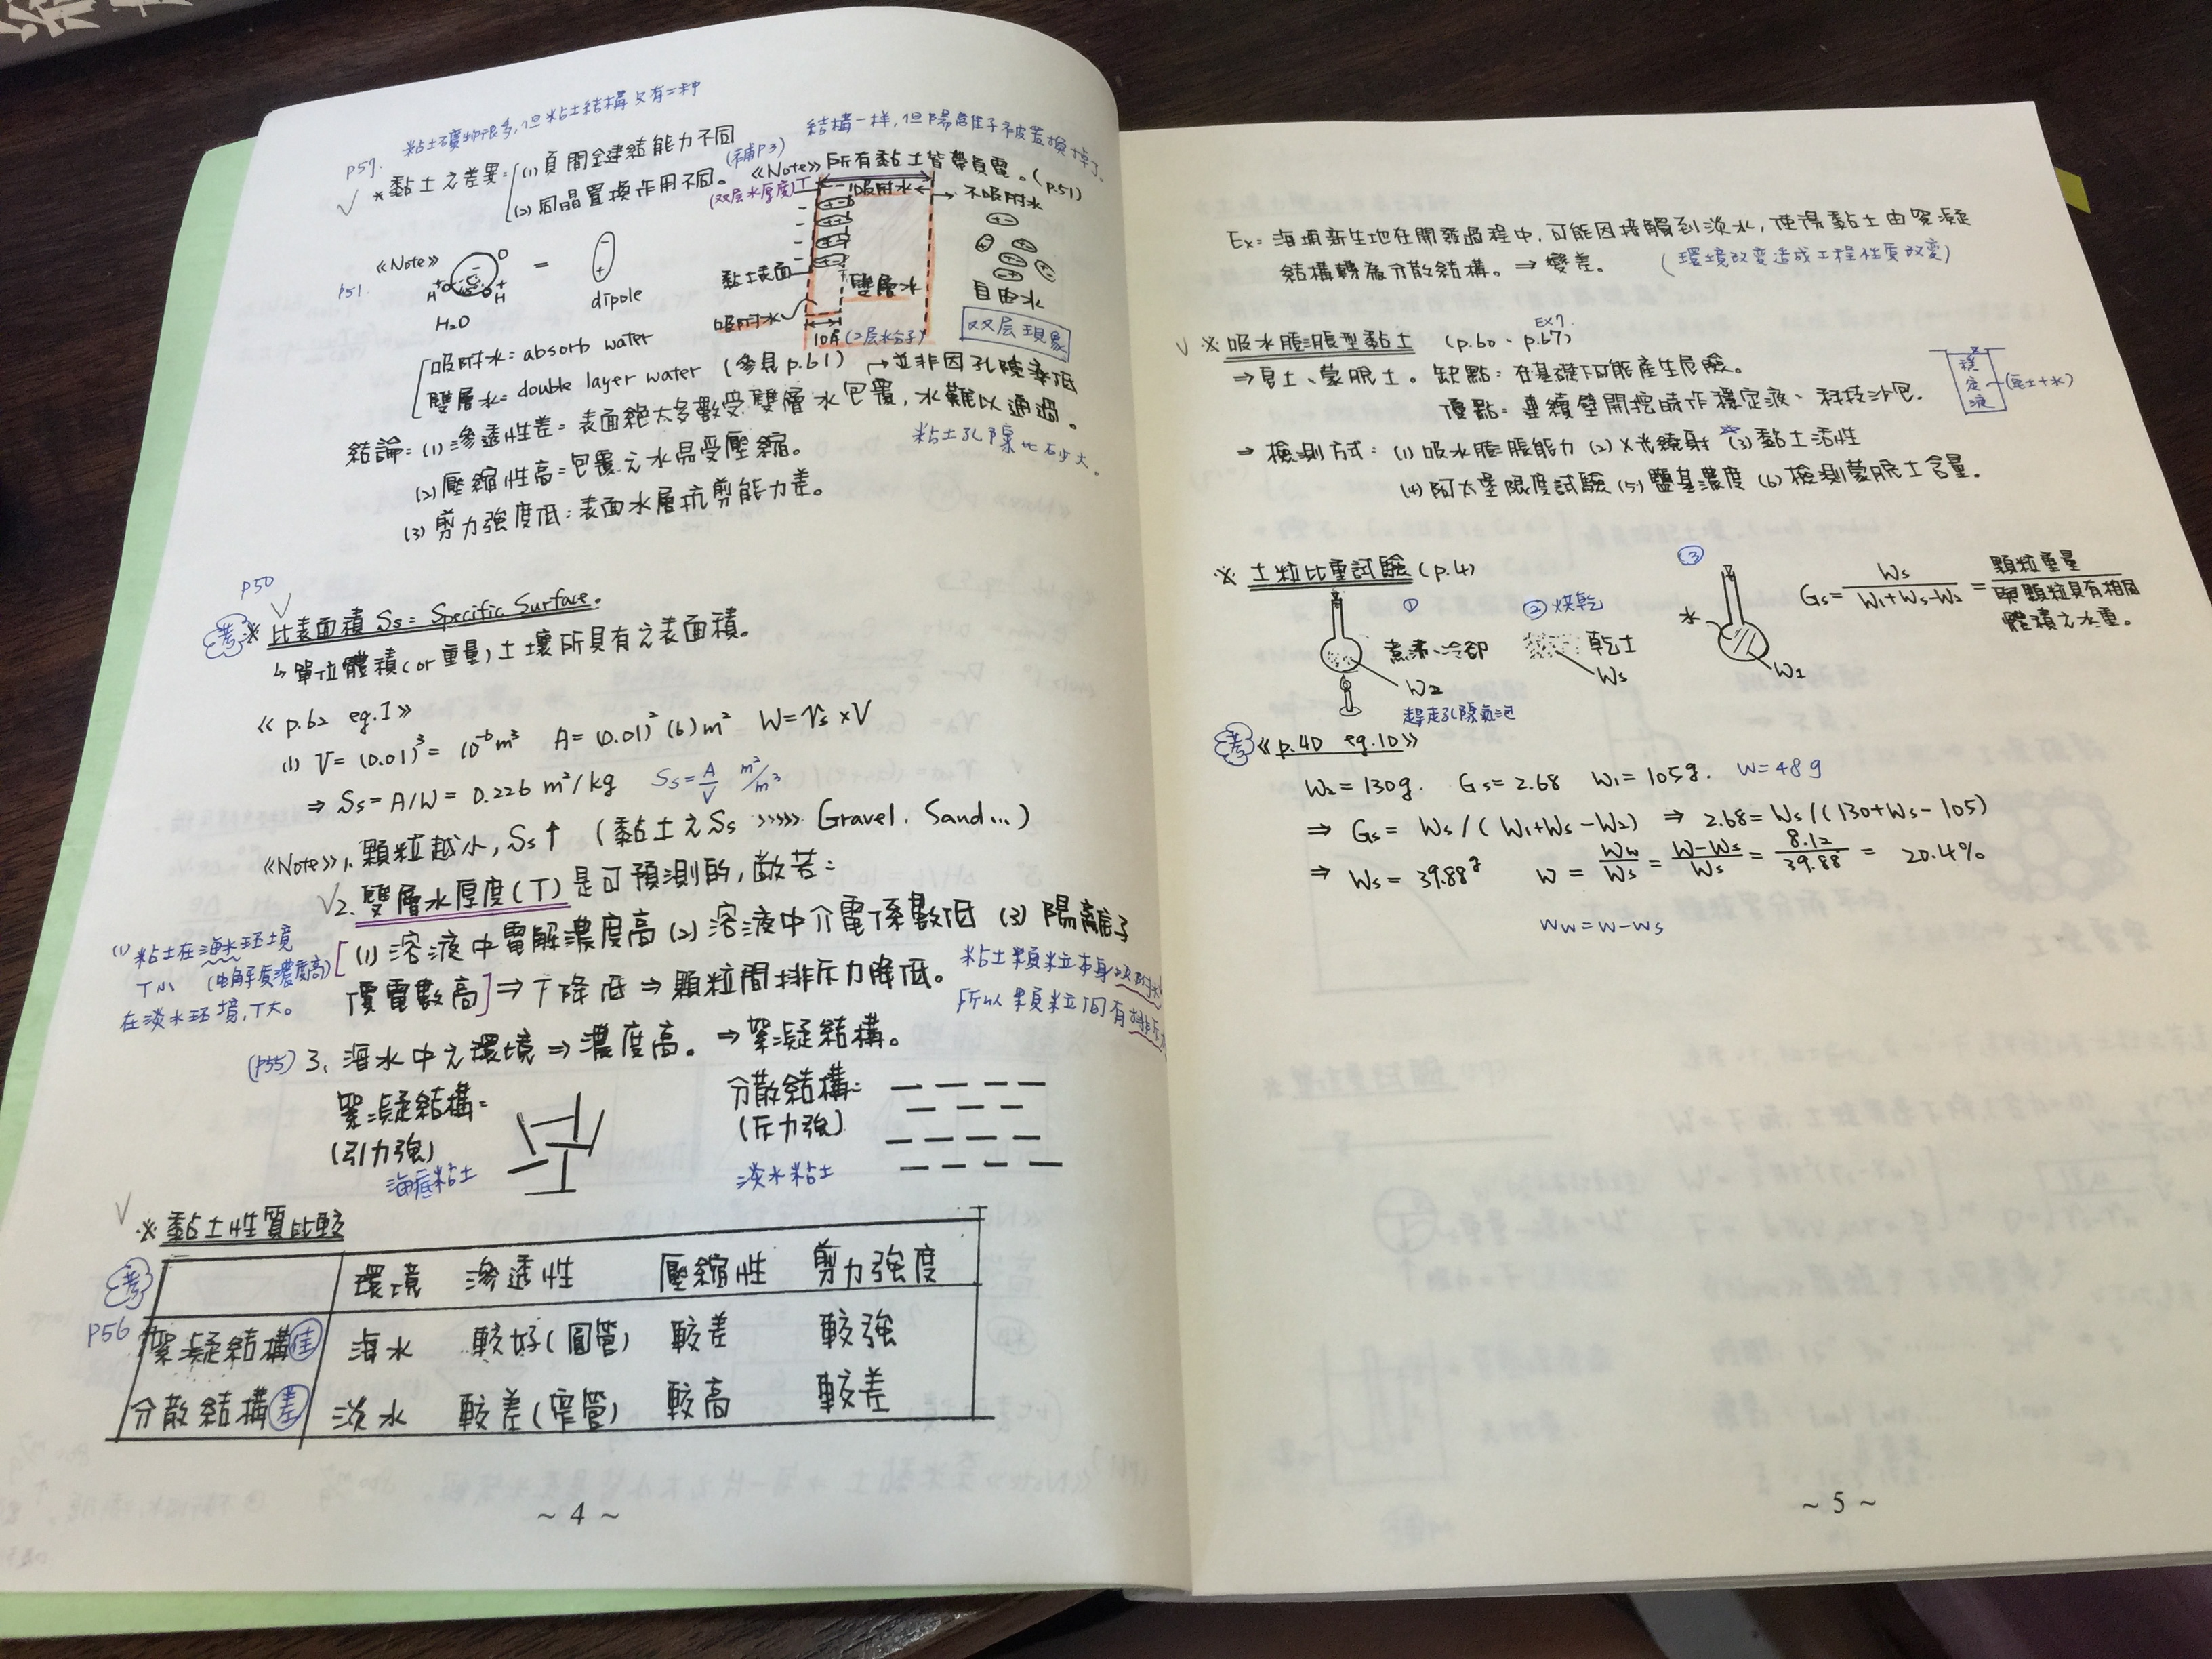 粘土礦物很多，但粘土結構只有二种
結構一样，但陽離子被置換掉了。
p57.
※黏土之差異：(1) 頁間鍵結能力不同
(2) 同晶置換作用不同。
(補p3)
《Note》所有黏土皆帶負電。(p.51)
(双层水厚度) T
吸附水
不吸附水
《Note》
p51.
H H
H₂O
=
dipole
黏土表面
雙層水
自由水
吸附水
10Å (2层水分子)
双层現象
吸附水：absorb water
雙層水：double layer water (參見p.61)
→並非因孔隙率低
結論：(1) 滲透性差：表面絕大多數受雙層水包覆，水難以通過。
粘土孔隙比砂大。
(2) 壓縮性高：包覆之水易受壓縮。
(3) 剪力強度低：表面水層抗剪能力差。
p50
考
※ 比表面積 Ss：Specific Surface.
↳單位體積(or 重量)土壤所具有之表面積。
《p.62 eg.1》
(1) V=(0.01)³=10⁻⁶m³ A=(0.01)²(6)m² W=γs×V
⇒ Ss=A/W=0.226 m²/kg Ss=A/V m²/m³
《Note》1. 顆粒越小，Ss↑ (黏土之Ss >>>>> Gravel. Sand...)
2. 雙層水厚度(T)是可預測的，故若：
[(1) 溶液中電解濃度高 (2) 溶液中介電係數低 (3) 陽離子
價電數高]⇒T降低⇒顆粒間排斥力降低。
(1) 粘土在海水环境
T小 (电解质濃度高)
在淡水环境，T大。
粘土顆粒本身吸附水
所以顆粒间有排斥
(p55) 3. 海水中之環境⇒濃度高。⇒絮凝結構。
絮凝結構：
(引力強)
海底粘土
分散結構：
(斥力強)
淡水粘土
※ 黏土性質比較
考
P56
環境 滲透性 壓縮性 剪力強度
絮凝結構 佳 海水 較好(圓管) 較差 較強
分散結構 差 淡水 較差(窄管) 較高 較差
~ 4 ~
Ex：海埔新生地在開發過程中，可能因接觸到淡水，使得黏土由絮凝
結構轉為分散結構。⇒變差。 (環境改變造成工程性質改變)
EX7.
※ 吸水膨脹型黏土 (p.60、p.67)
⇒皂土、蒙脫土。缺點：在基礎下可能產生危險。
優點：連續壁開挖時作穩定液、科技沙包.
穩定液
(皂土+水)
⇒ 檢測方式：(1) 吸水膨脹能力 (2) X光繞射 (3) 黏土活性
(4) 阿太堡限度試驗 (5) 鹽基濃度 (6) 檢測蒙脫土含量.
※ 土粒比重試驗 (p.4)
①
煮沸、冷卻
W2
趕走孔隙氣泡
② 烘乾
乾土
Ws
③
水
W1
Gs=Ws/(W1+Ws-W2)=顆粒重量/與顆粒具有相同體積之水重。
考
《p.40 eg.10》
W2=130g. Gs=2.68 W1=105g. W=48g
⇒ Gs=Ws/(W1+Ws-W2) ⇒ 2.68=Ws/(130+Ws-105)
⇒ Ws=39.88g w=Ww/Ws=(W-Ws)/Ws=8.12/39.88=20.4%
Ww=W-Ws
~ 5 ~